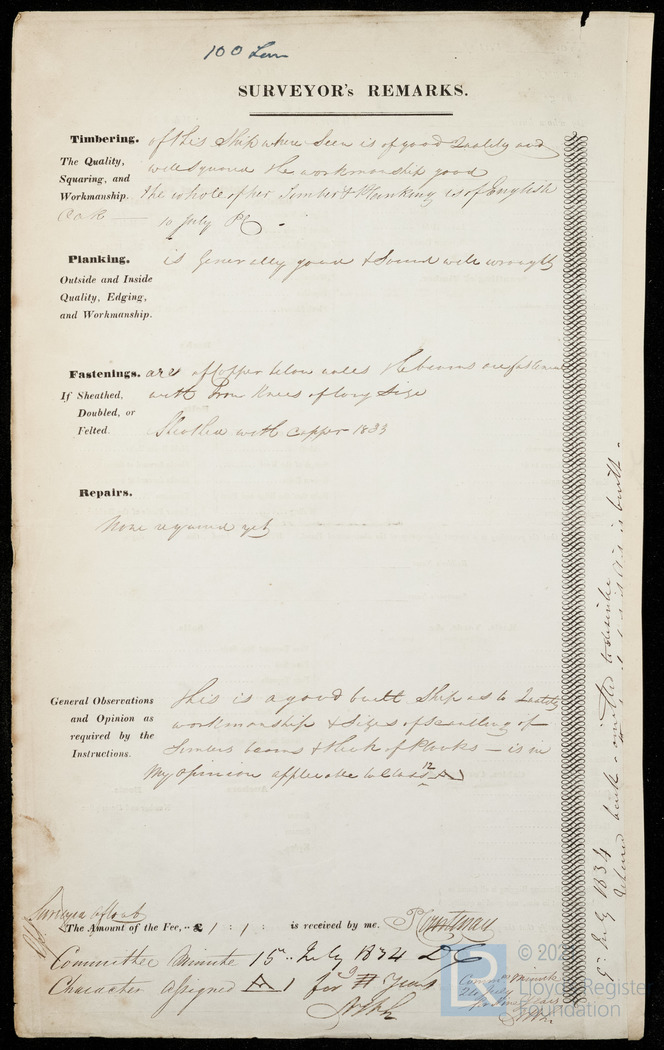 100 Lon
SURVEYOR's REMARKS.
Timbering. of this Ship where Seen is of good Quality and
The Quality, well Squared the workmanship good
Squaring, and
Workmanship. the whole of her Timber & Planking is of English
Oak — 10 July PC
Planking. is Generally good & Sound well wrought
Outside and Inside
Quality, Edging,
and Workmanship.
Fastenings. are of Copper below wales the beams are fastened
If Sheathed, with Iron Knees of long Size
Doubled, or
Felted. Sheathed with Copper 1833
Repairs.
None required yet
General Observations This is a good built Ship as to Quality
and Opinion as workmanship & Sizes of Scantling of
required by the
Instructions. Timbers beams & thick of Planks — is in
My opinion applicable to Class 12 A
Surveyed afloat
The Amount of the Fee, .. £ 1 : 1 : is received by me. P Courtenay
Committee Minute 15th July 1834
Character assigned A 1 for 9 Years
Comm Minute
9 July 1834
Returned back - omitted to describe
is built -
© 202
Lloyd's Register
Foundation